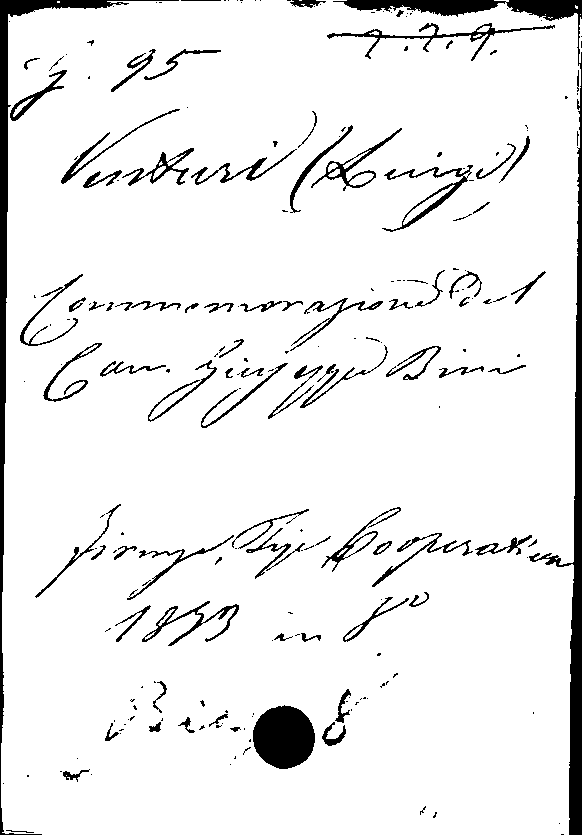 G. 95 2.2.9.
Venturi (Luigi)
Commemorazione del
Cav. Giuseppe Bini
Firenze, Tip. Cooperativa
1893 in 8º
8